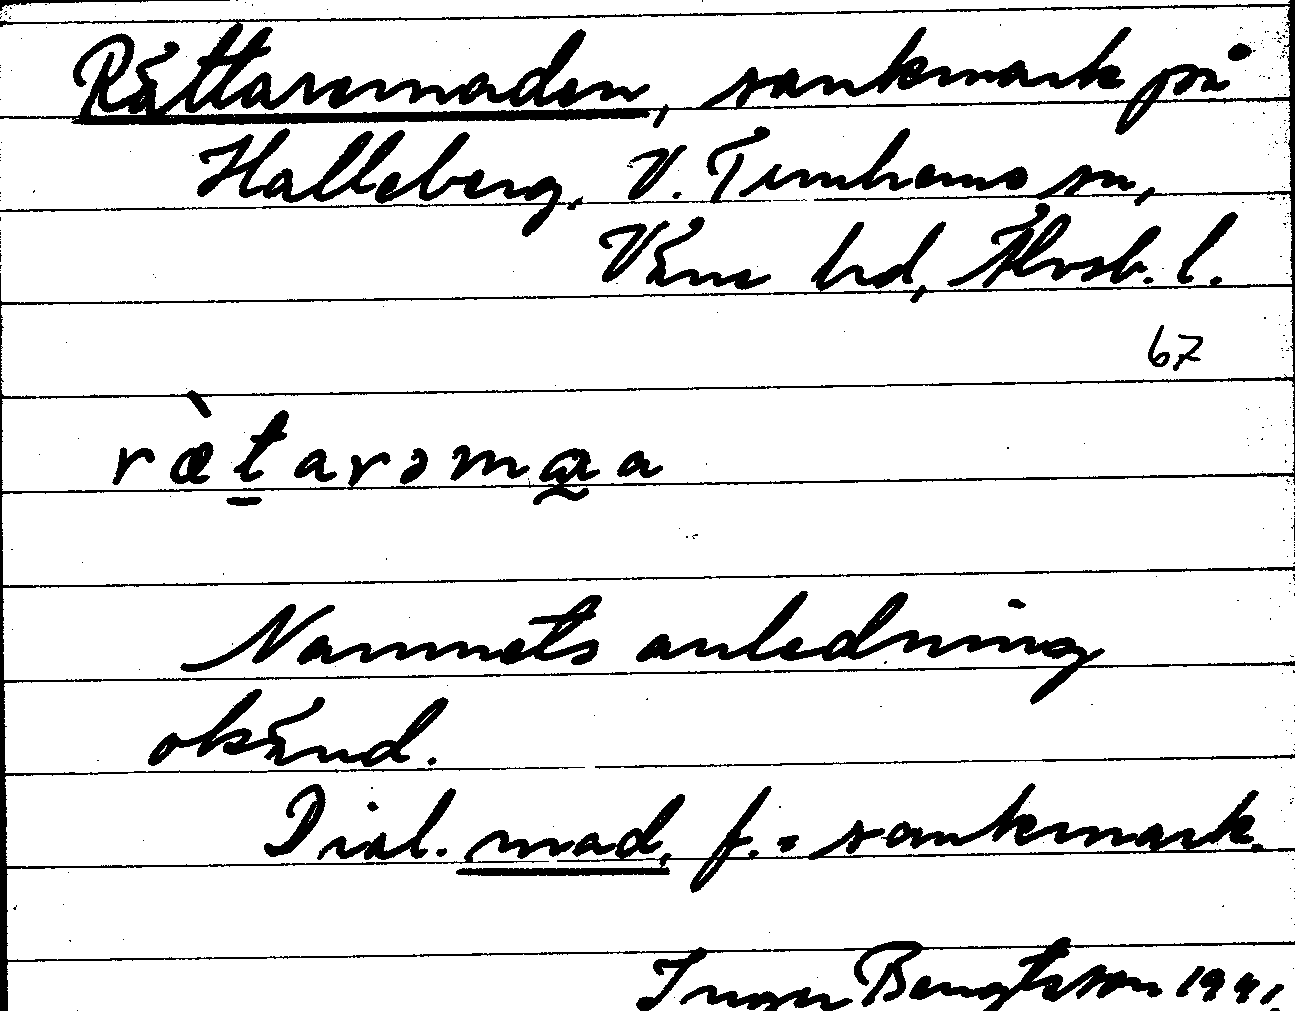 Rättaremaden, sankmark på
Halleberg, V. Tunhems sn,
Väne hd, Älvsb. l.
67
ræ̀t̲arəmɑ̰a
Namnets anledning
okänd.
Dial. mad, f. = sankmark.
Inger Bengtsson 1941.